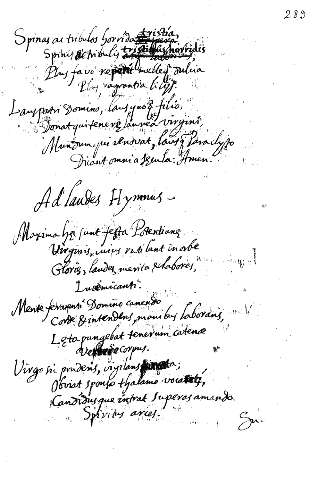 289
Spinas ac tribulos horrida tristia,
Spinis & tribulis tristibus horridis
Plus favo mellea dulcia
Plus lilijs.
Laus patri Domino, laus quoq; filio,
Donat qui tenere laurea virgini,
Mundum qui laus Paraclyto
Dicant omnia secula: Amen.
Ad laudes Hymnus
Maxima hec sunt festa Potentiane
Virginis, cuius rutilant in orbe
Gloria, laudes, merita & labores,
Luce micanti.
Mente ferventi Domino canendo
Corde & intendens, manibus laborans,
Leta pungebat tenerum catene
corpus.
Virgo sic prudens, vigilans
Obviat sponso thalamo
Candidusque intrat superas amando
Spiritus arces.